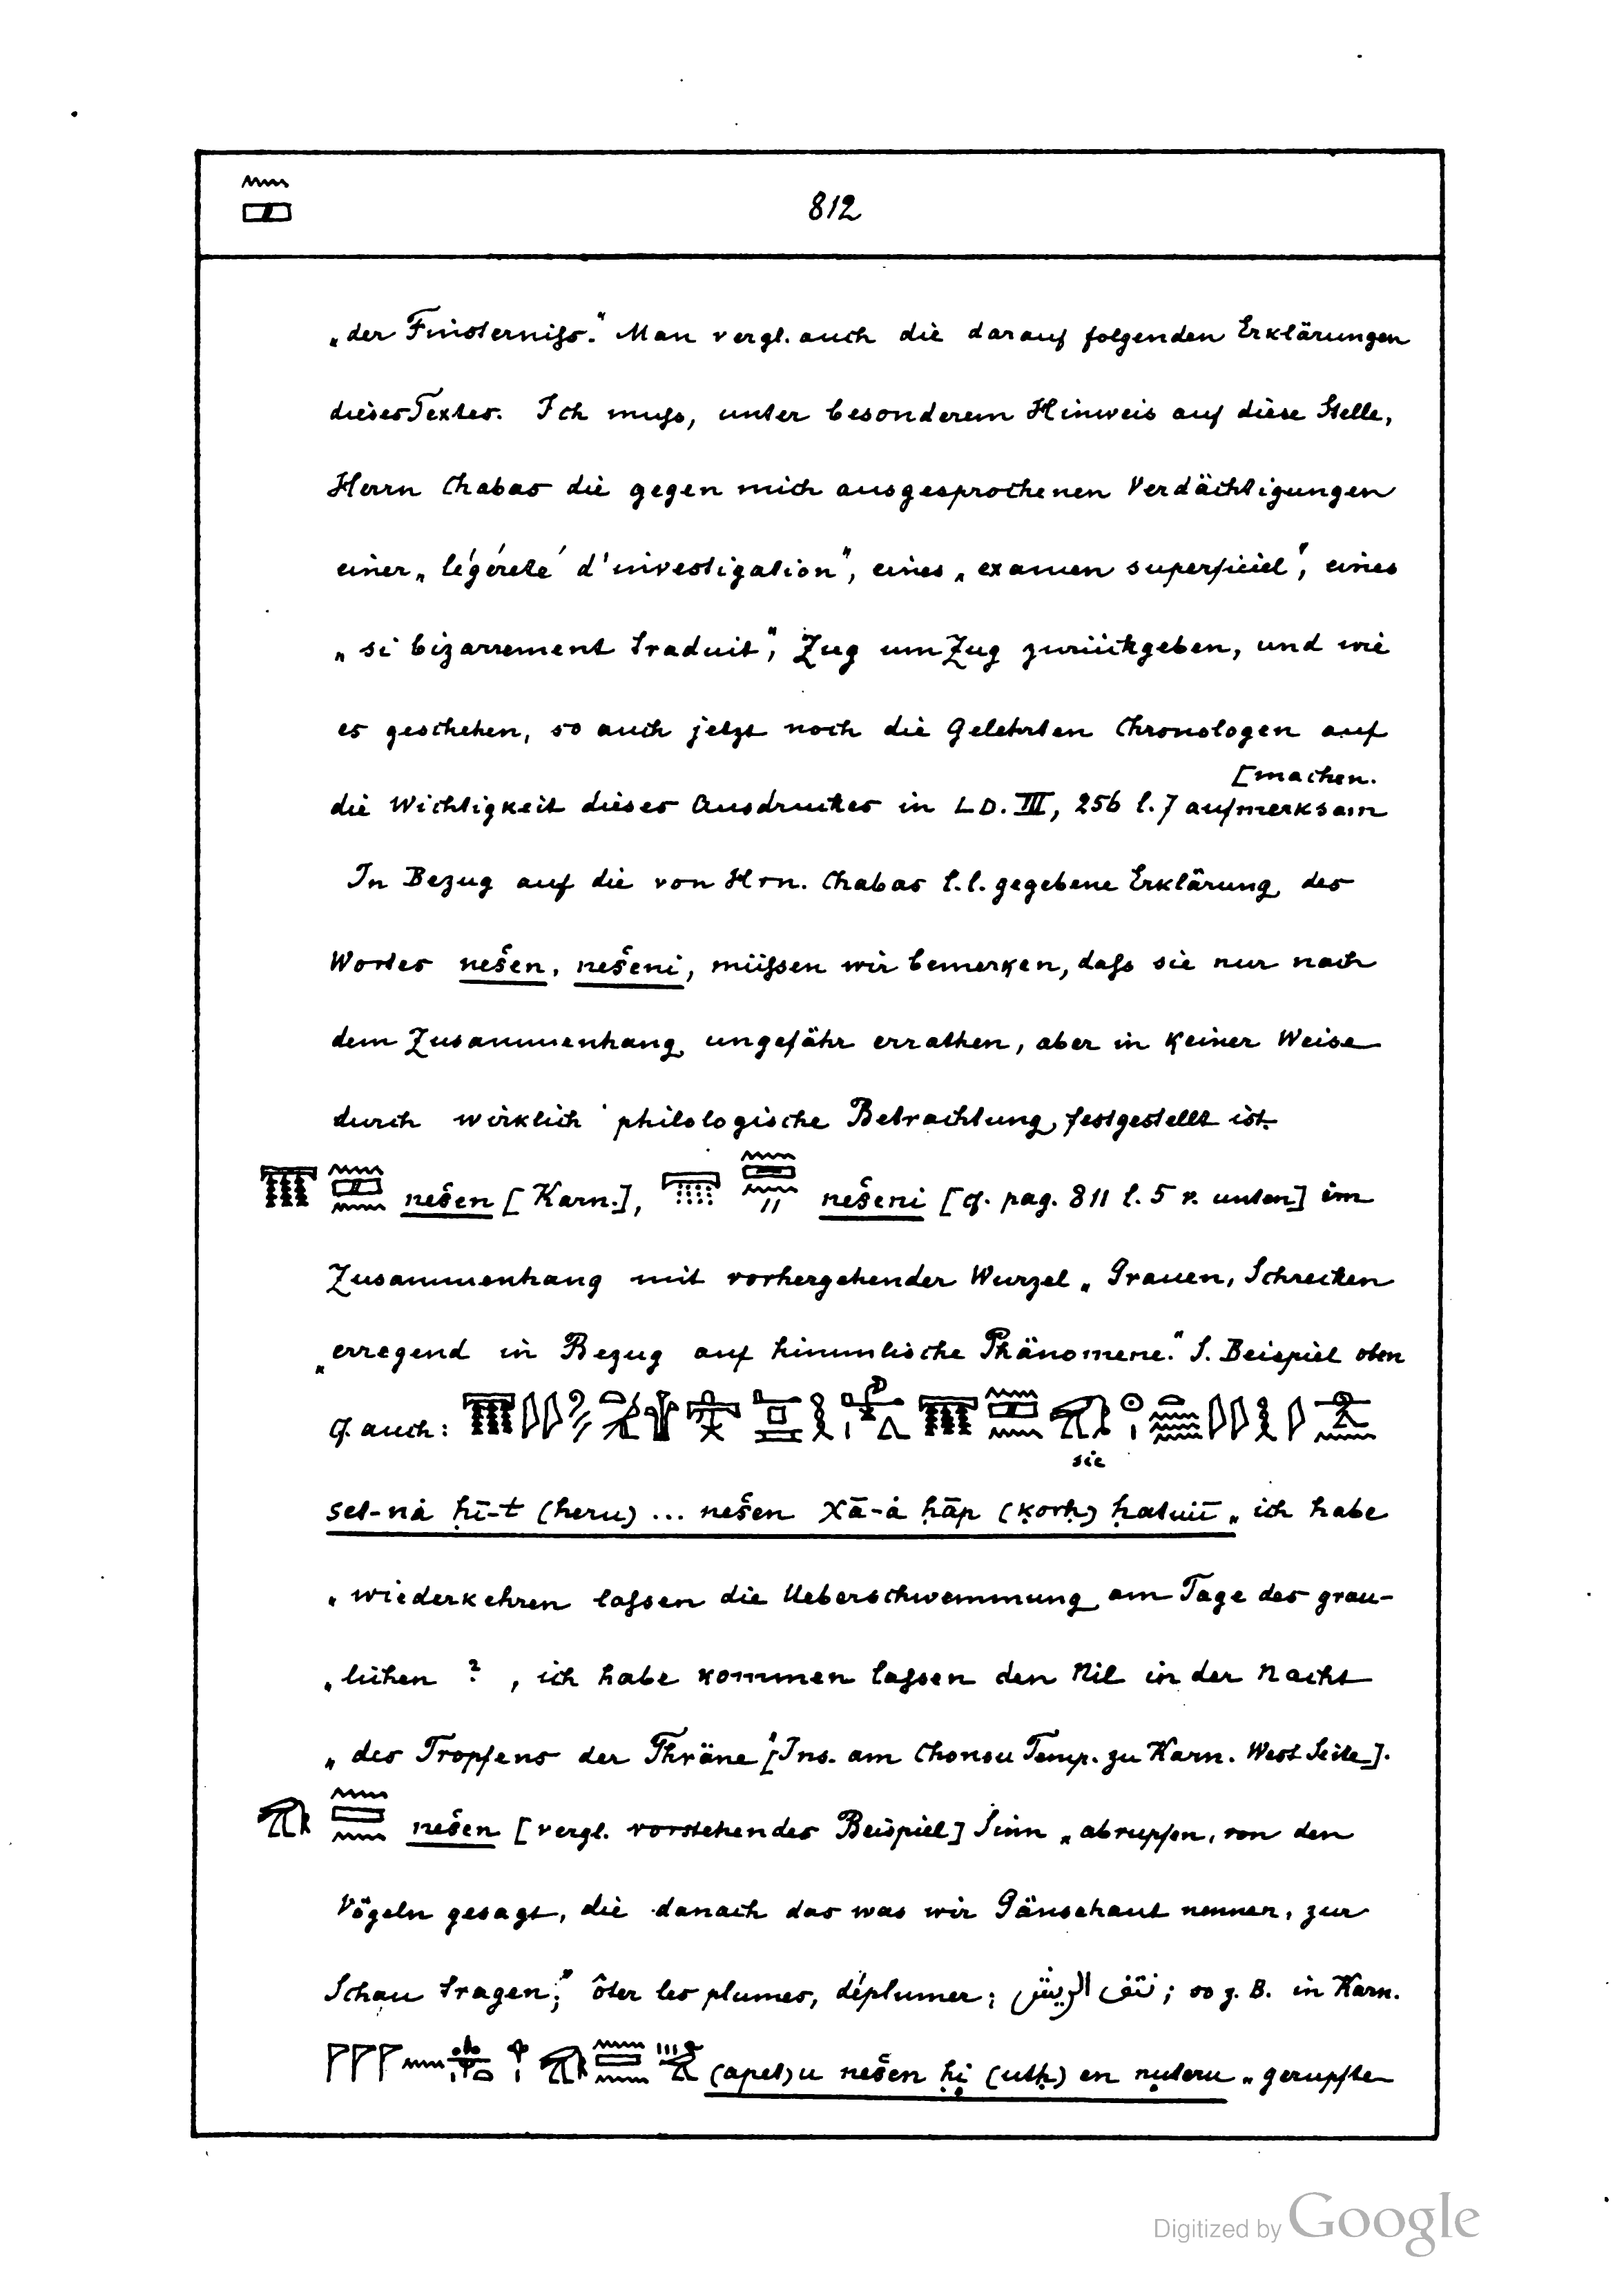 812
„der Finsterniſs.“ Man vergl. auch die darauf folgenden Erklärungen
dieses Textes. Ich muſs, unter besonderem Hinweis auf diese Stelle,
Herrn Chabas die gegen mich ausgesprochenen Verdächtigungen
einer „légéreté d'investigation“, eines „examen superficiel“, eines
„si bizarrement traduit“, Zug um Zug zurückgeben, und wie
es geschehen, so auch jetzt noch die gelehrten Chronologen auf
[machen.
die Wichtigkeit dieses Ausdruckes in LD. III, 256 l. 7 aufmerksam
In Bezug auf die von Hrn. Chabas l.l. gegebene Erklärung des
Wortes nešen, nešeni, müſsen wir bemerken, daſs sie nur nach
dem Zusammenhang ungefähr errathen, aber in keiner Weise
durch wirklich philologische Betrachtung festgestellt ist.
nešen [Karn.], nešeni [cf. pag. 811 l. 5 v. unten] im
Zusammenhang mit vorhergehender Wurzel „Grauen, Schrecken
„erregend in Bezug auf himmlische Phänomene.“ S. Beispiel oben
Cf. auch:
sic
set-nȧ ḥī-t (heru) ... nešen χā-ȧ ḥāp (ḳorḥ) ḥatuīī „ich habe
„wiederkehren laſsen die Ueberschwemmung am Tage des grau-
„lichen ?, ich habe kommen laſsen den Nil in der Nacht
„des Tropfens der Thräne“ [Ins. am Chonsu Temp. zu Karn. West Seite].
nešen [vergl. vorstehendes Beispiel] Sinn „abrupfen, von den
Vögeln gesagt, die danach das was wir Gänsehaut nennen, zur
Schau tragen;“ ôter les plumes, déplumer; نتف الريش; so z. B. in Karn.
(apet)u nešen ḥi (utḥ) en nuteru „gerupfte
Digitized by Google